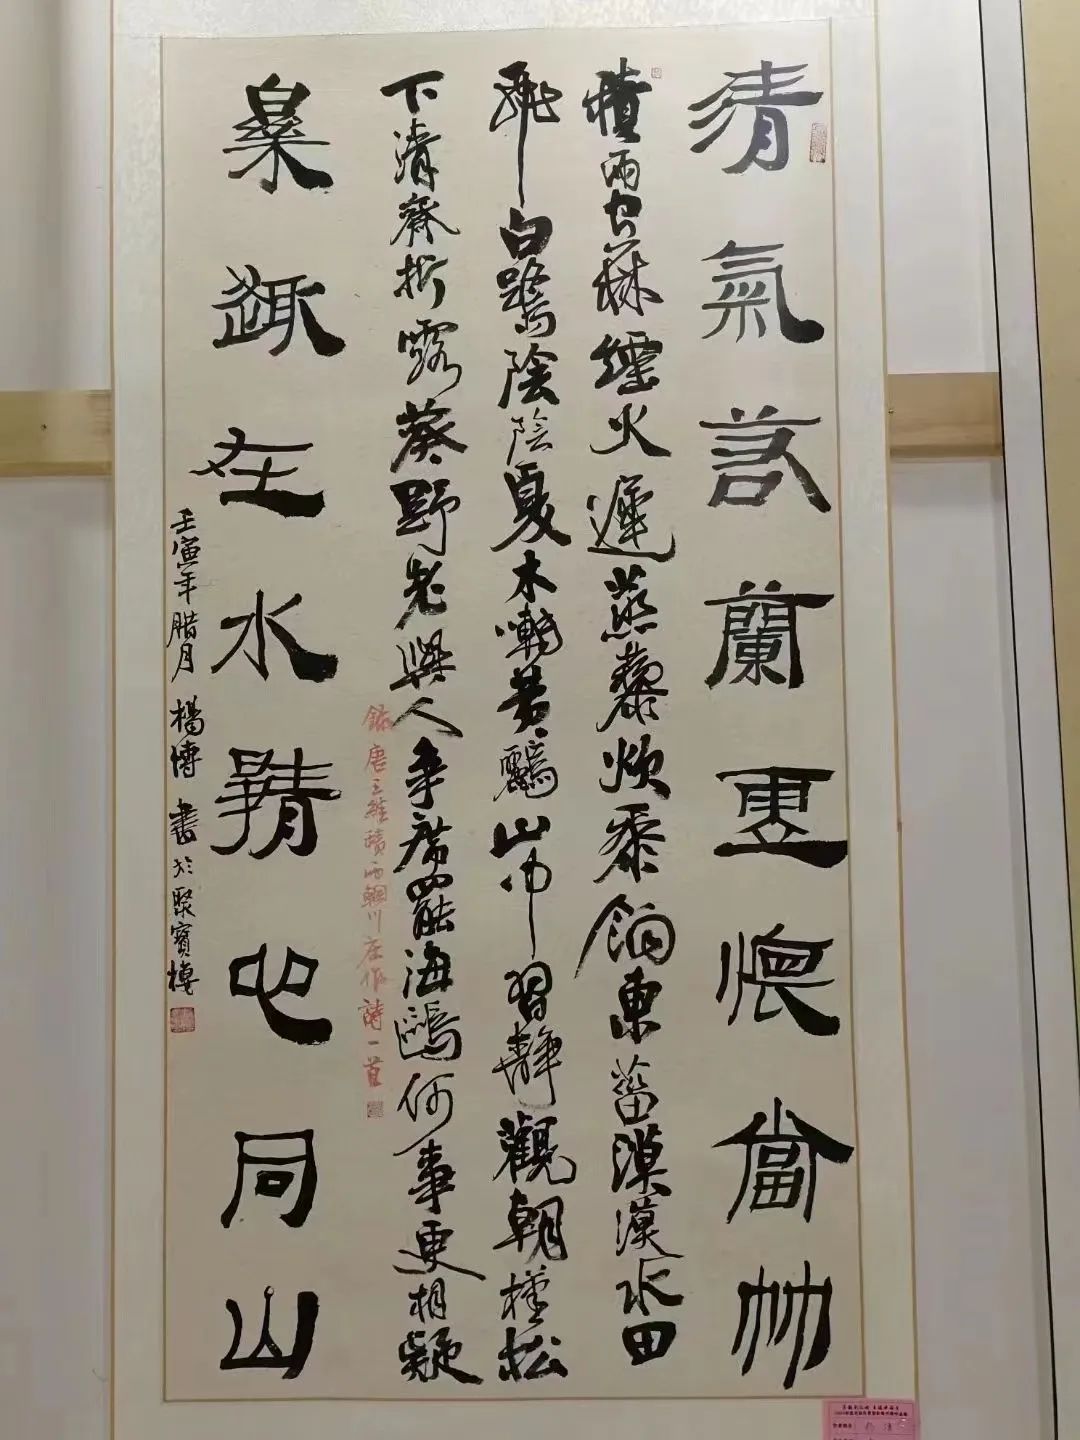 清氣若蘭虛懷當竹
積雨空林煙火遲蒸藜炊黍餉東菑漠漠水田
飛白鷺陰陰夏木囀黃鸝山中習靜觀朝槿松
下清齋折露葵野老與人爭席罷海鷗何事更相疑
錄唐王維積雨輞川庄作詩一首
樂趣在水靜心同山
壬寅年腊月楊博書於聚寶樓